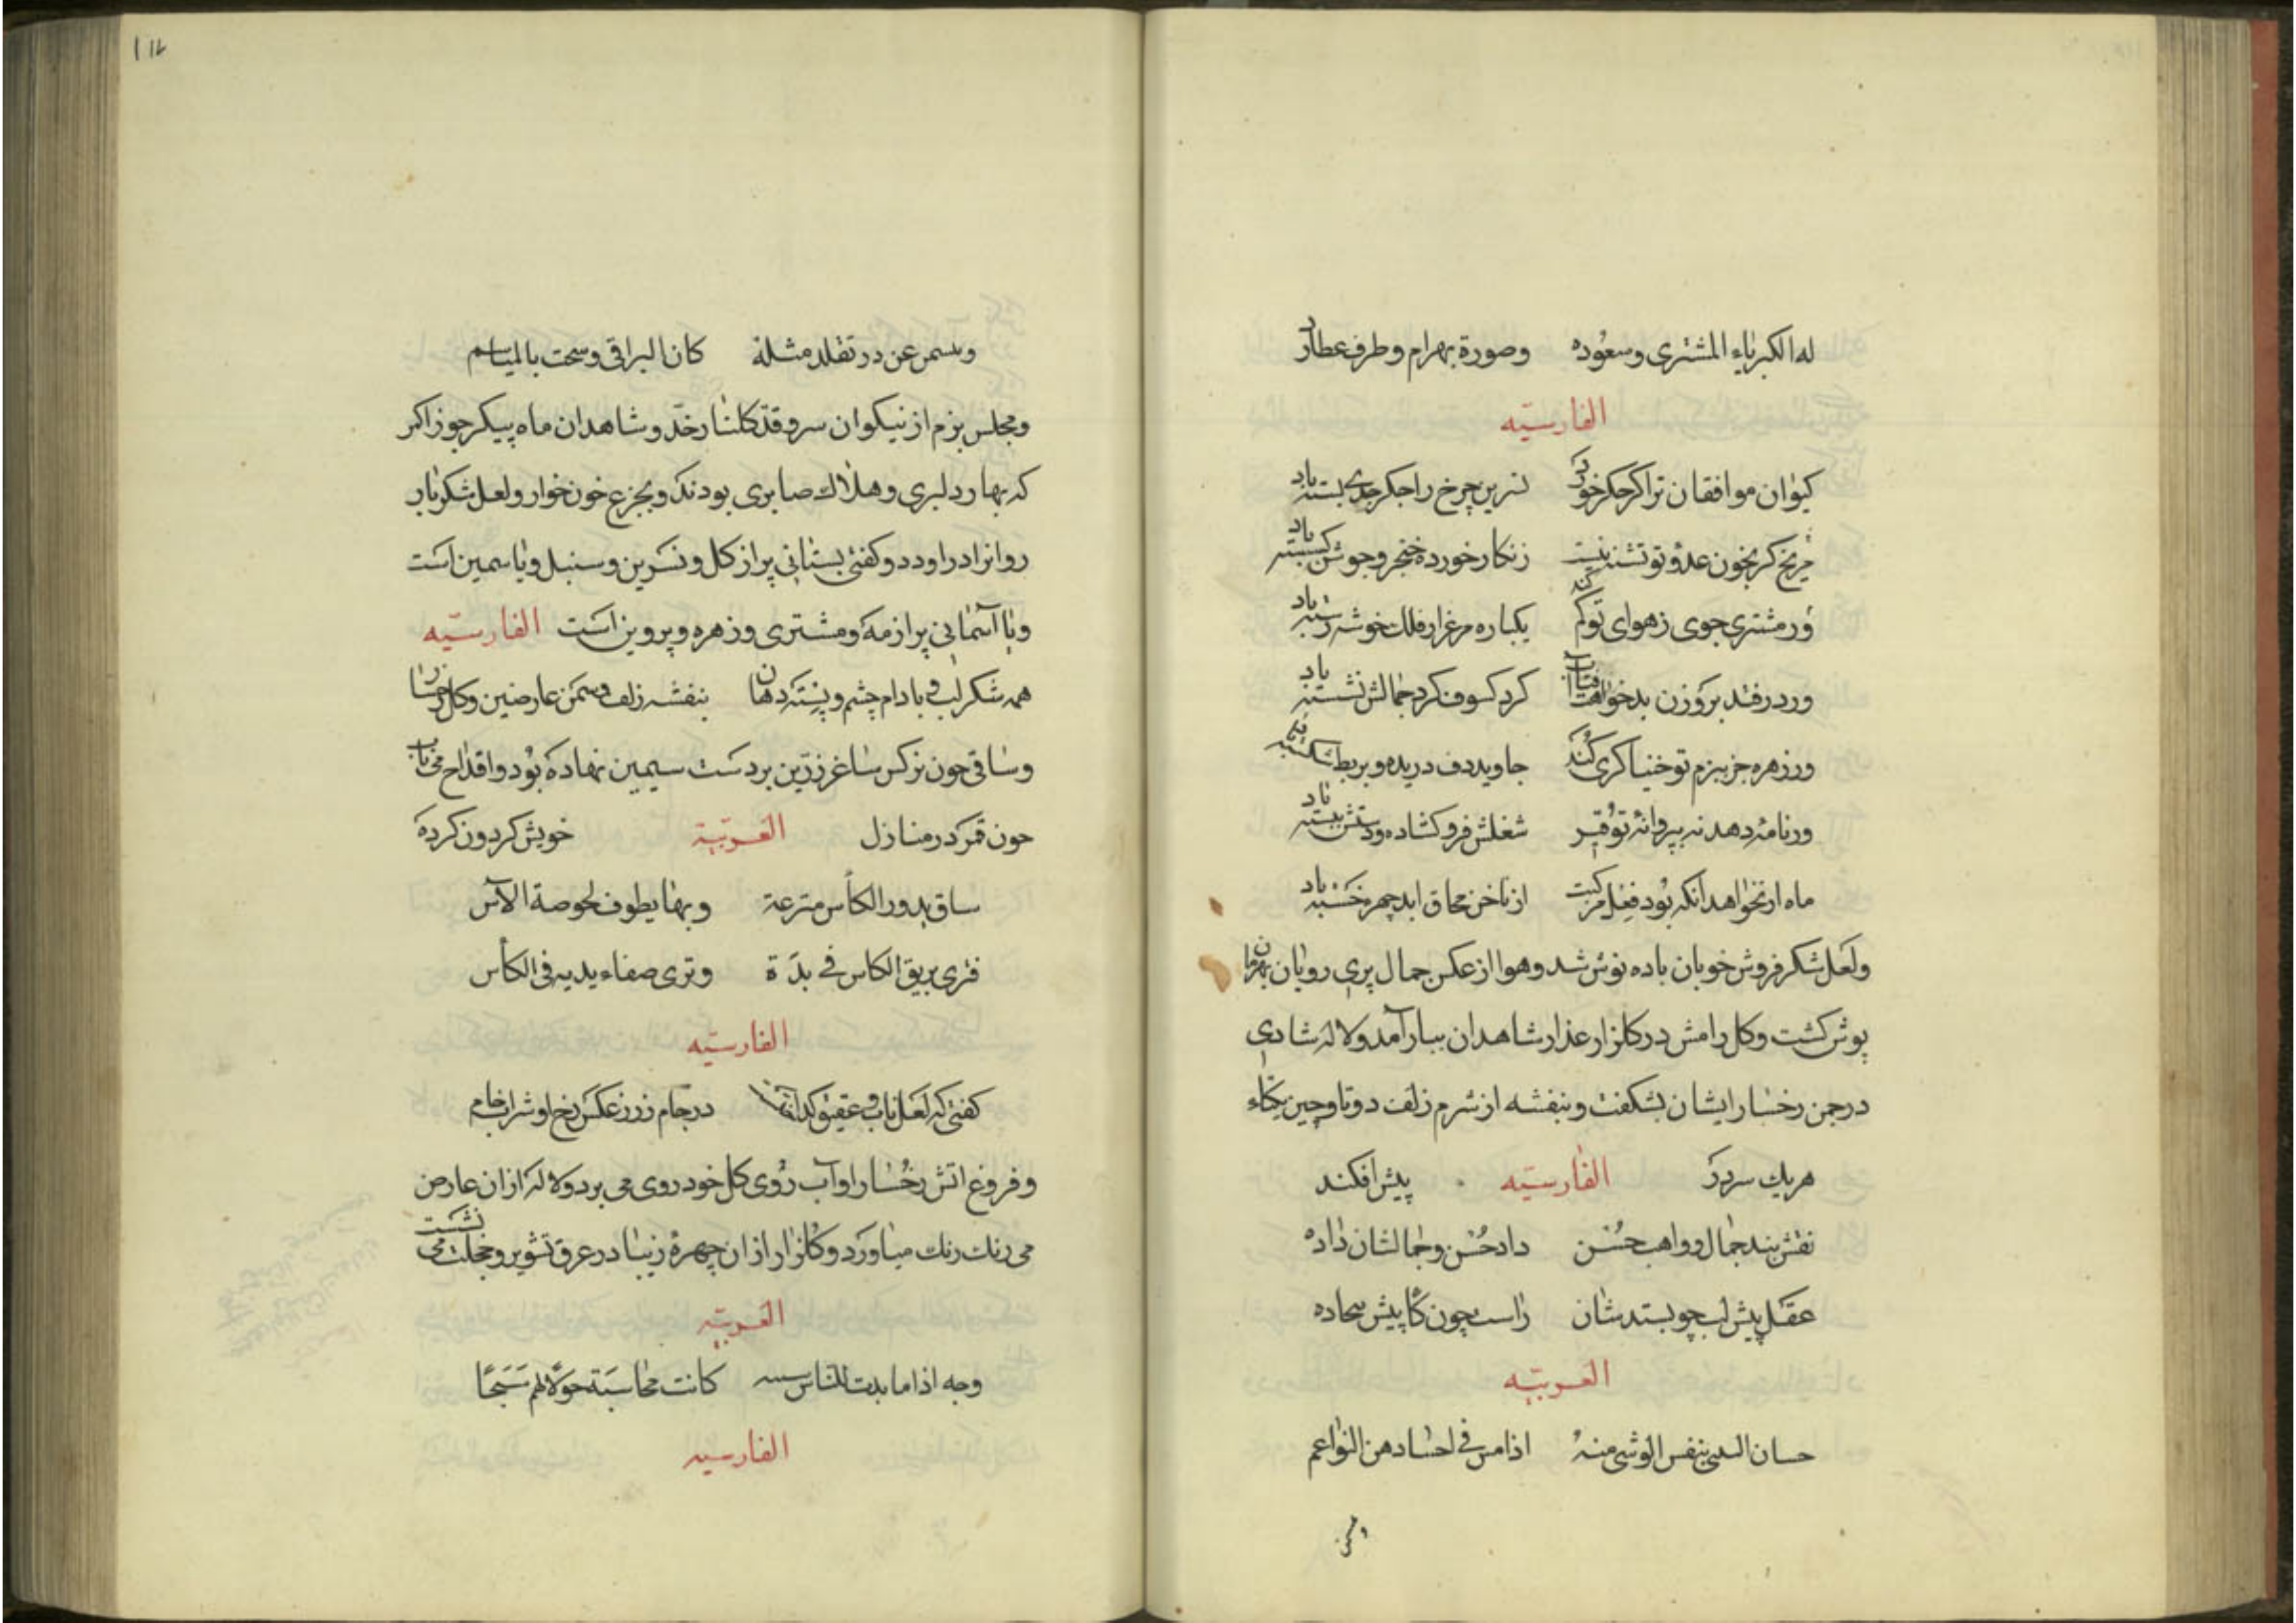 له الکبریاء المشتری وسعوده وصورة بهرام وطرف عطارد
الفارسیّه
کیوان موافقان ترا گر جگر خورد نسرین چرخ را جگر جدی بسته باد
مریخ گر بخون عدو تو تشنه نیست زنکار خورده خنجر و جوشن گسسته باد
ور مشتری جوی ز هوای تو کم کند یکباره مرغزار فلک خوشه رسته باد
ور در فتد بروزن بدخواهت آفتاب کرد کسوف کرد جمالش نشسته باد
ور زهره جز ببزم تو خنیاکری کند جاوید دف دریده و بربط شکسته باد
ور نامه دهد نه بپروانه تو تیر شغلش فرو کشاده و دستش ببسته باد
ماه ار نخواهد آنکه بود نعل مرکبت از ناخن محاق ابد چهره خسته باد
ولعل شکر فروش خوبان باده نوش شد وهوا از عکس جمال پری رویان بهرمان
پوش کشت وکل رامش در کلزار عذار شاهدان ببار آمد ولاله شادی
درجمن رخسار ایشان بشکفت وبنفشه از شرم زلف دوتا وچین یکتاء
هریک سر در الفارسیّه پیش افکند
نقش بند جمال وواهب حسن داد حسن وجمالشان داده
عقل پیش لب چو بسد شان راست چون کا پیش بیجاده
العربیّه
حسان بنفس الوشی منه اذا مس فی اجساد هن النواعم
ویبسمن عن در تقلدن مثله کان التراقی وشحت بالمباسم
ومجلس بزم از نیکوان سرو قد کلنار خد و شاهدان ماه پیکر جوزا کمر
که بهار دلبری وهلاک صابری بودند وبجزع خون خوار ولعل شکر بار
روانرا در اودد وکفتی بستانی پر از کل ونسرین وسنبل ویاسمین است
ویا آسمانی پر از مه ومشتری وزهره وپروین است الفارسیّه
همه شکر لب و بادام چشم و پسته دهان بنفشه زلف وسمن عارضین وکل رخسار
وساقی جون نرکس ساغر زرین بر دست سیمین نهاده بود واقداح می ناب
جون قمر در منازل العربیّة خویش کردون کرده
ساق یدور الکأس مترعة وبها یطوف لحوصة الآس
فتری بریق الکاس فی یده وتری صفاء یدیه فی الکأس
الفارسیّه
کفتی که لعل ناب و عقیق کداخته در جام زر ز عکس رخ او شراب خام
وفروغ اتش رخسار او آب روی کل خود روی می برد ولاله از ان عارض
می رنک رنک میاورد وکلزار از ان چهره زیبا در عرق تشویر وخجلت می نشست
العربیّه
وجه اذا ما بدت للناس کانت محاسنه حولا لهم سبحا
الفارسیه